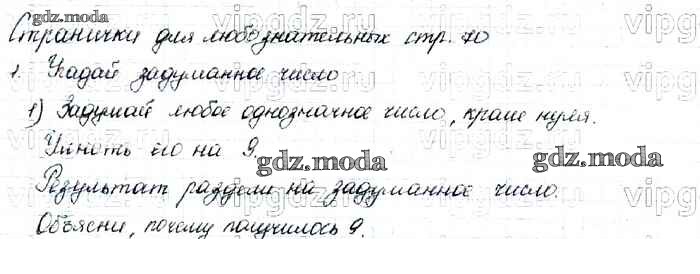 gdz.moda
Странички для любознательных стр. 70
1. Угадай задуманное число
1) Задумай любое однозначное число, кроме нуля.
Умножь его на 9.
gdz.moda gdz.moda
Результат раздели на задуманное число.
Объясни, почему получилось 9.